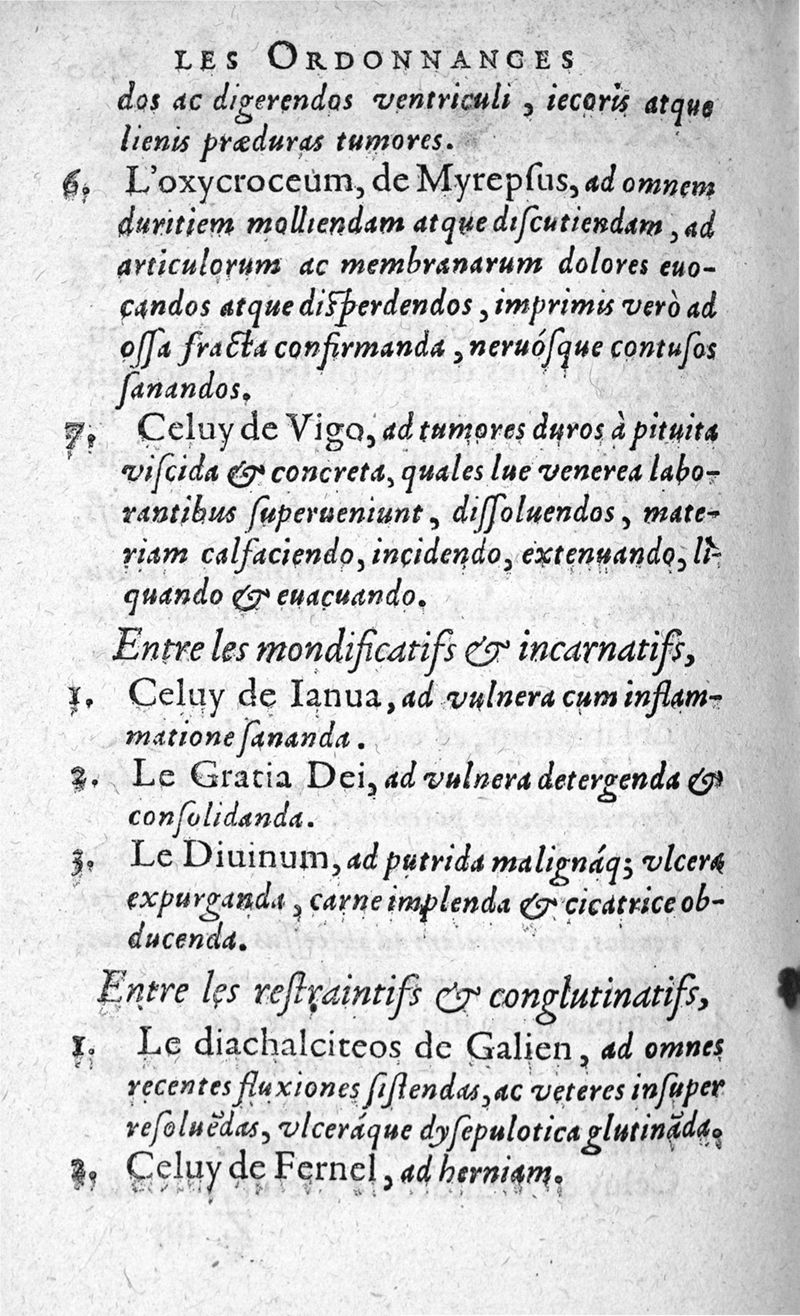 LES ORDONNANCES
dos ac digerendos ventriculi, iecoris atque
lienis præduras tumores.
6. L'oxycroceum, de Myrepſus, ad omnem
duritiem molliendam atque diſcutiendam, ad
articulorum ac membranarum dolores euo-
candos atque diſperdendos, imprimis verò ad
oſſa fracta confirmanda, neruóſque contuſos
ſanandos.
7. Celuy de Vigo, ad tumores duros à pituita
viſcida & concreta, quales lue venerea labo-
rantibus ſuperueniunt, diſſoluendos, mate-
riam calfaciendo, incidendo, extenuando, li-
quando & euacuando.
Entre les mondificatifs & incarnatifs,
1. Celuy de Ianua, ad vulnera cum inflam-
matione ſananda.
2. Le Gratia Dei, ad vulnera detergenda &
conſolidanda.
3. Le Diuinum, ad putrida malignáq; vlcera
expurganda, carne implenda & cicatrice ob-
ducenda.
Entre les reſtraintifs & conglutinatifs,
1. Le diachalciteos de Galien, ad omnes
recentes fluxiones ſiſtendas, ac veteres inſuper
reſoluẽdas, vlceráque dyſepulotica glutinãda.
2. Celuy de Fernel, ad herniam.